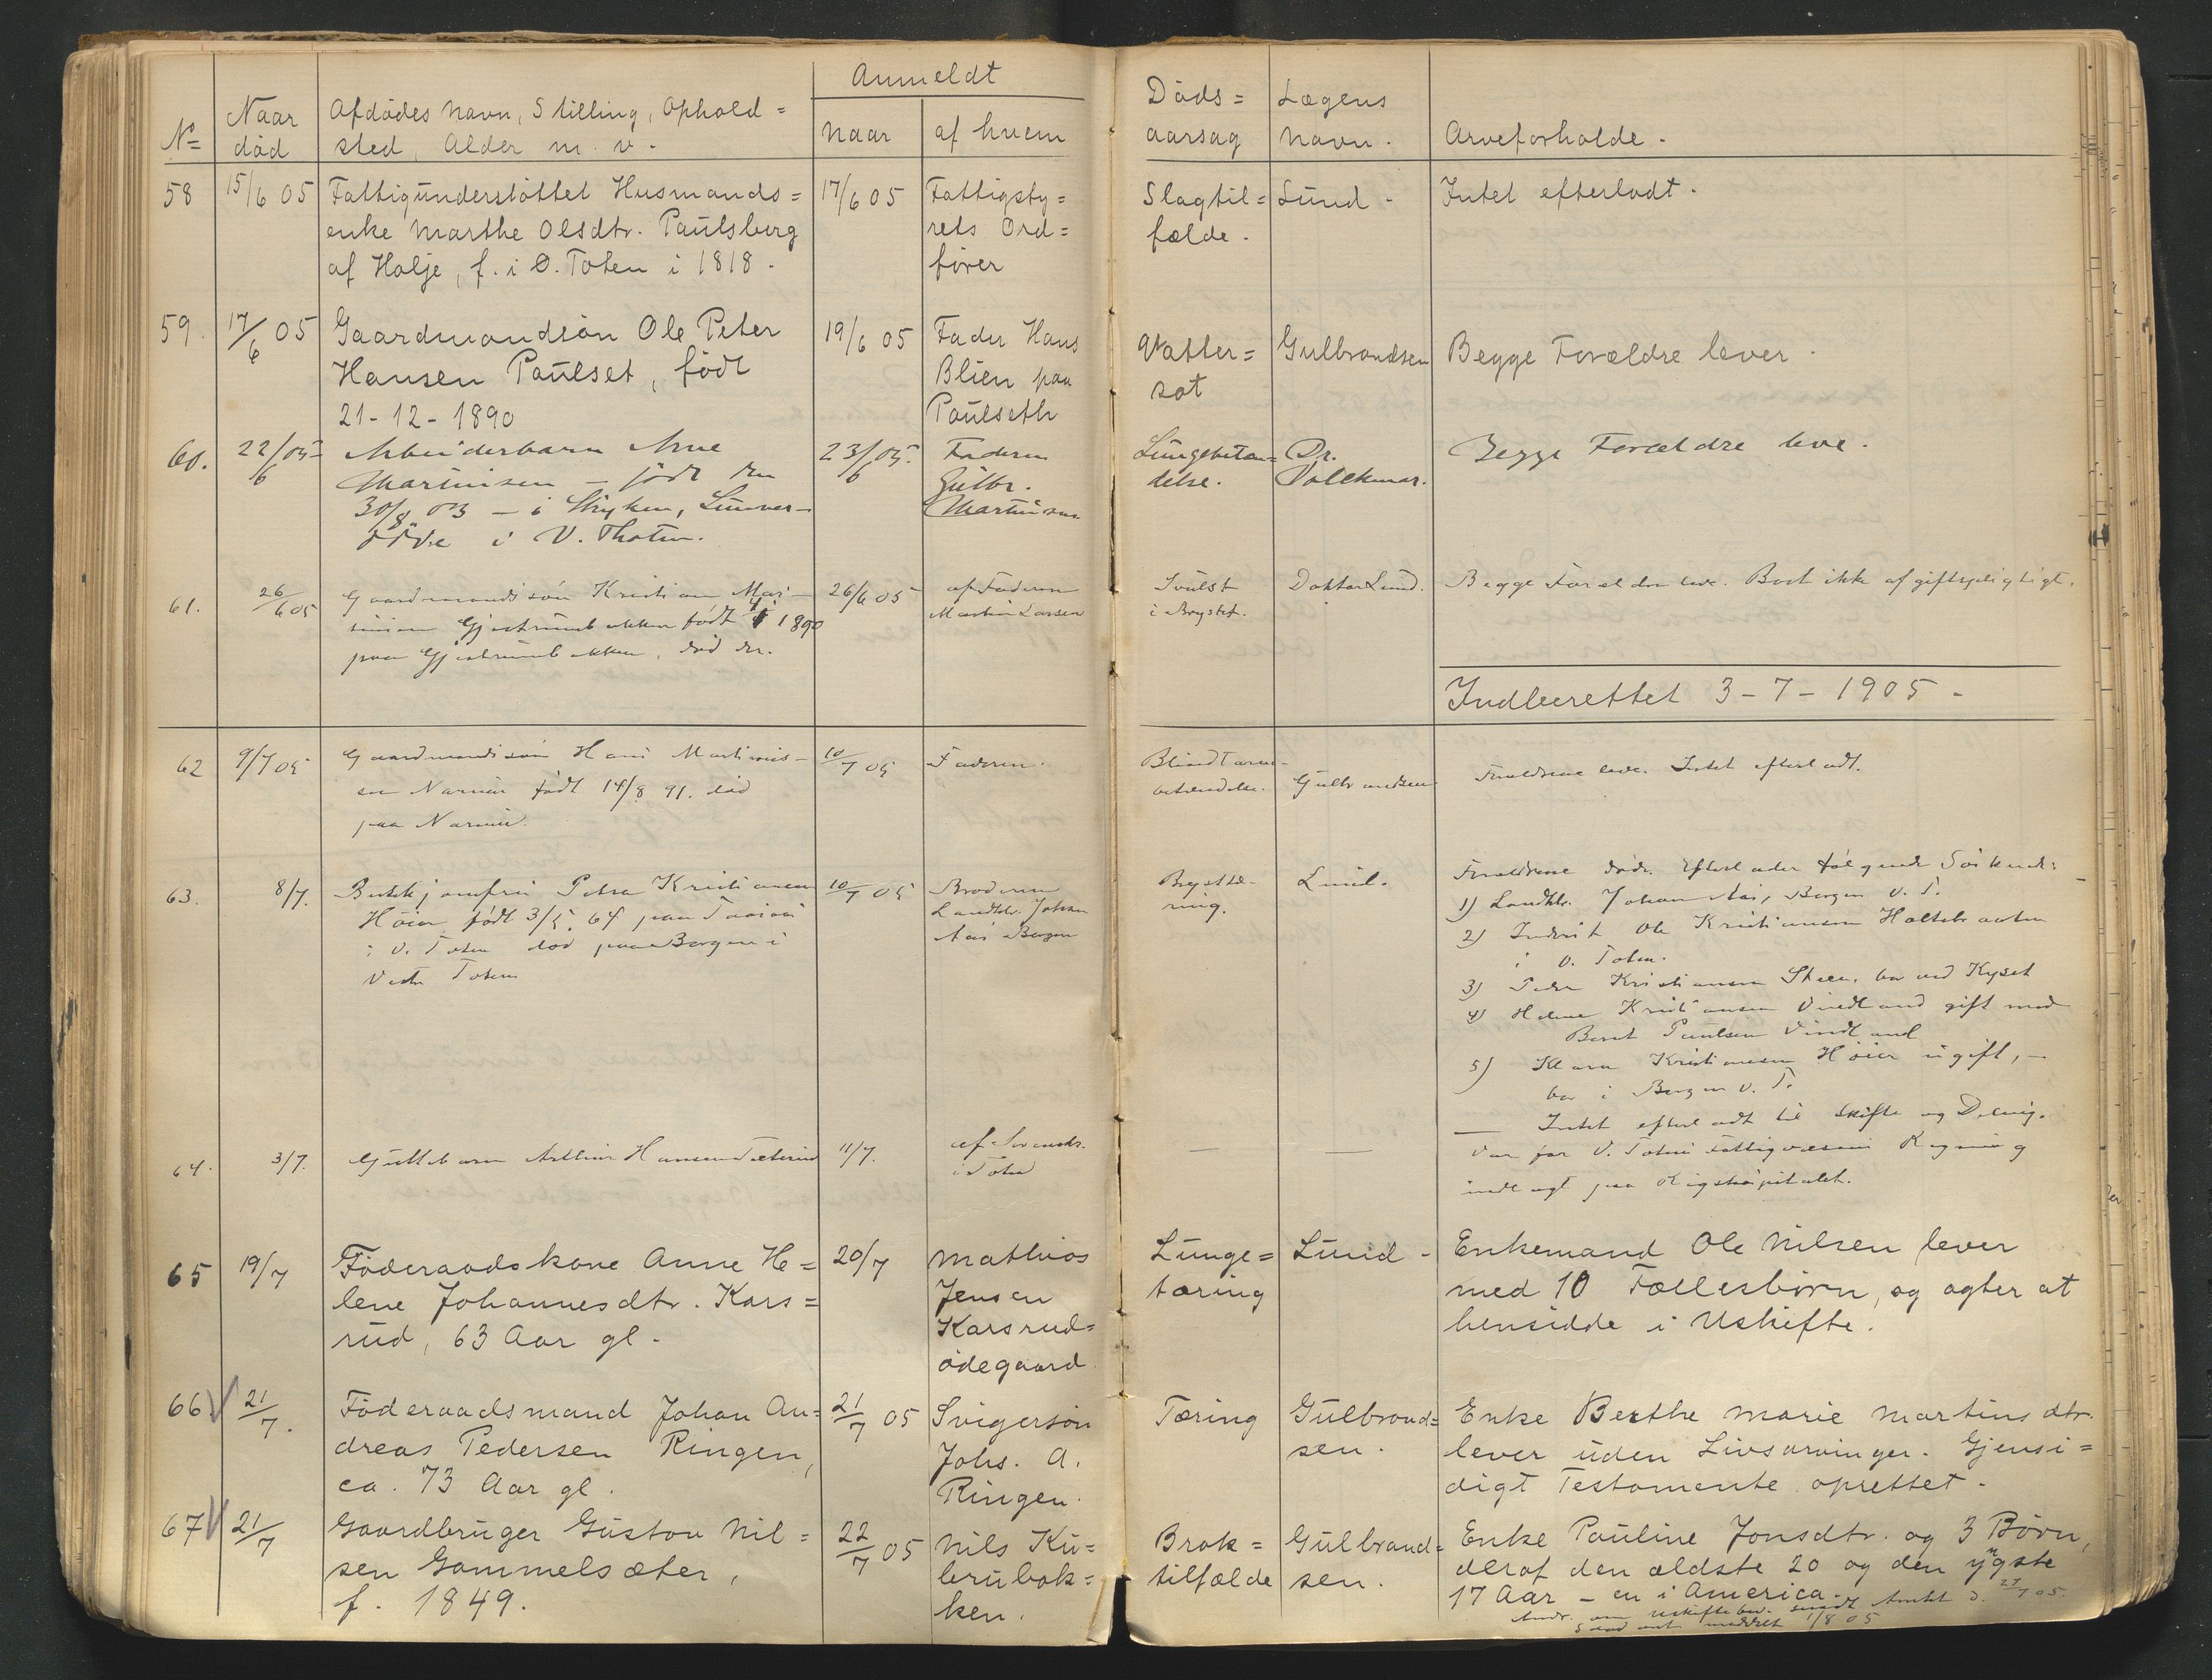 Anmeldt
№ Naar død Afdødes Navn, Stilling, Ophold=
sted, Alder m. v. naar af hvem
Døds= aarsag Lægens Navn. Arveforholde.
58 15/6 05 Fattigunderstøttet Husmands=
enke Marthe Olsdtr. Paulsberg
af Holje, f. i Ø. Toten i 1818.
17/6 05 Fattigsty=
rets Ord=
fører
Slagtil=
fælde.
Lund.
Intet efterladt.
59. 17/6 05 Gaardmandsøn Ole Peter
Hansen Paulset, født
21-12-1890
19/6 05 Fader Hans
Blien paa
Paulseth
Vatter=
sot
Gulbrandsen
Begge Forældre lever.
60. 22/6 05 Arbeiderbarn Arne
Martinsen – født den
30/8 03 – i Stryken,
døde i V. Thoten.
23/6 05. Faderen
Gulbr.
Martinsen
Lungebetæn=
delse.
Dr.
Volckmar.
Begge Forældre leve.
61. 26/6 05 Gaardmandssøn Kristian Mar-
tinsen Gjestrumbakken født 1890
paa Gjestrumbakken, død der.
26/6 05 af Faderen
Martin Larsen
Svulst
i Brystet.
Doktor Lund.
Begge Forældre leve. Boet ikke afgiftspligtigt.
Indberettet 3-7-1905-
62 9/7 05 Gaardmandssøn Hans Martinius-
sen Narum født 14/8 91. død
paa Narum.
10/7 05 Faderen.
Blindtarm-
betændelse.
Gulbrandsen
Forældrene leve. Intet efterladt.
63. 8/7. Butikjomfru Petra Kristiansen
Høier, født 3/5. 64 paa
i V. Toten død paa Bergen i
Vestre Toten
10/7 05 Broderen
Landhdlr. Johan
Aas Bergen
Brysttæ-
ring.
Lund.
Forældrene døde. Efterlader følgende Søskende:
1) Landhdlr. Johan Aas, Bergen V. T.
2) Ole Kristiansen Holtebraaten
i V. Toten.
3) Peder Kristiansen Skeen, bor ved Kyset
4) Helene Kristiansen Vindland gift med
Bernt Paulsen Vindland
5) Klara Kristiansen Høier ugift, –
bor i Bergen V. T.
Intet efterladt til Skifte og Deling.
64. 3/7. Guttebarn Arthur Hansen Sæterud
11/7. af
i Toten
— —
Var for V. Totens Fattigvæsens Regning
indlagt paa Rigshospitalet.
65 19/7 Føderaadskone Anne He=
lene Johannesdtr. Kars=
rud, 63 Aar gl.
20/7 Mathias
Jensen
Karsrud=
ødegaard.
Lunge=
tæring
Lund.
Enkemand Ole Nilsen lever
med 10 Fællesbørn, og agter at
hensidde i Uskifte.
66 21/7. Føderaadsmand Johan An=
dreas Pedersen Ringen,
ca. 73 Aar gl.
21/7 05 Svigersøn
Johs. A.
Ringen.
Tæring
Gulbrand=
sen.
Enke Berthe Marie Martinsdtr.
lever uden Livsarvinger. Gjensi=
digt Testamente oprettet.
67 21/7 Gaardbruger Gustav Nil=
sen Gammelsæter,
f. 1849.
22/7 05 Nils Ku=
lerubak=
ken.
Brok=
tilfælde
Gulbrand=
sen.
Enke Pauline Jonsdtr. og 3 Børn,
deraf den ældste 20 og den yngste
17 Aar – en i America.
Andr. om uskiftebev. sendt Amtet d. 27/7 05.
meddelt 1/8 05